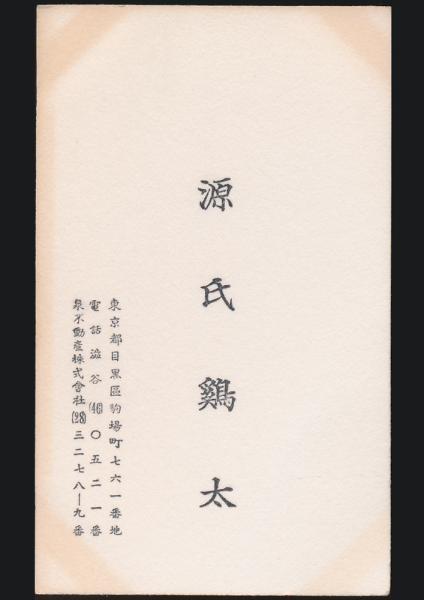 源氏鷄太
東京都目黒區駒場町七六一番地
電話澁谷(46)〇五二一番
泉不動産株式會社(28)三二七八―九番